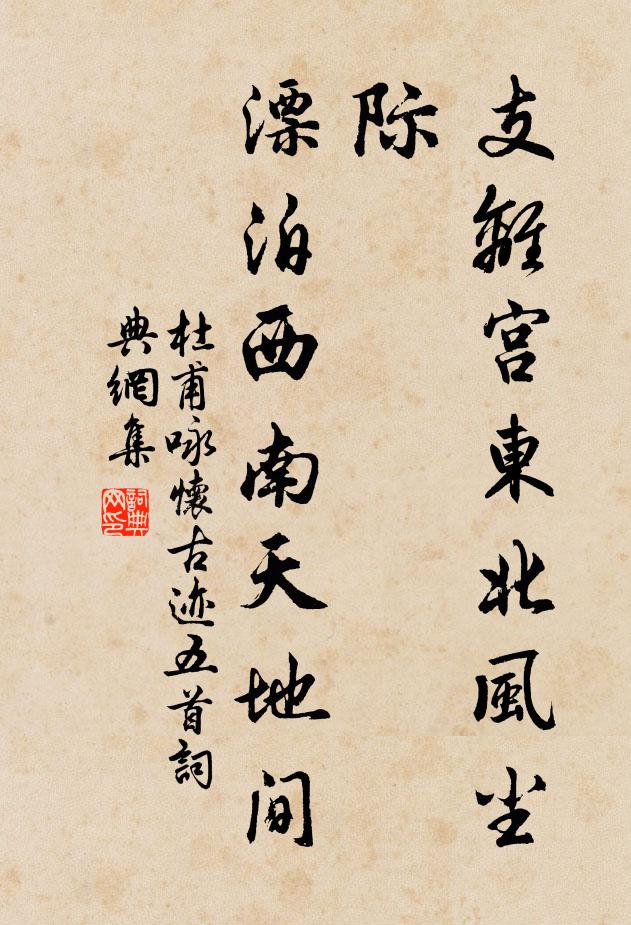 支離宫東北風尘
际
漂泊西南天地间
杜甫咏懷古迹五首詞
典網集
詞典
网印